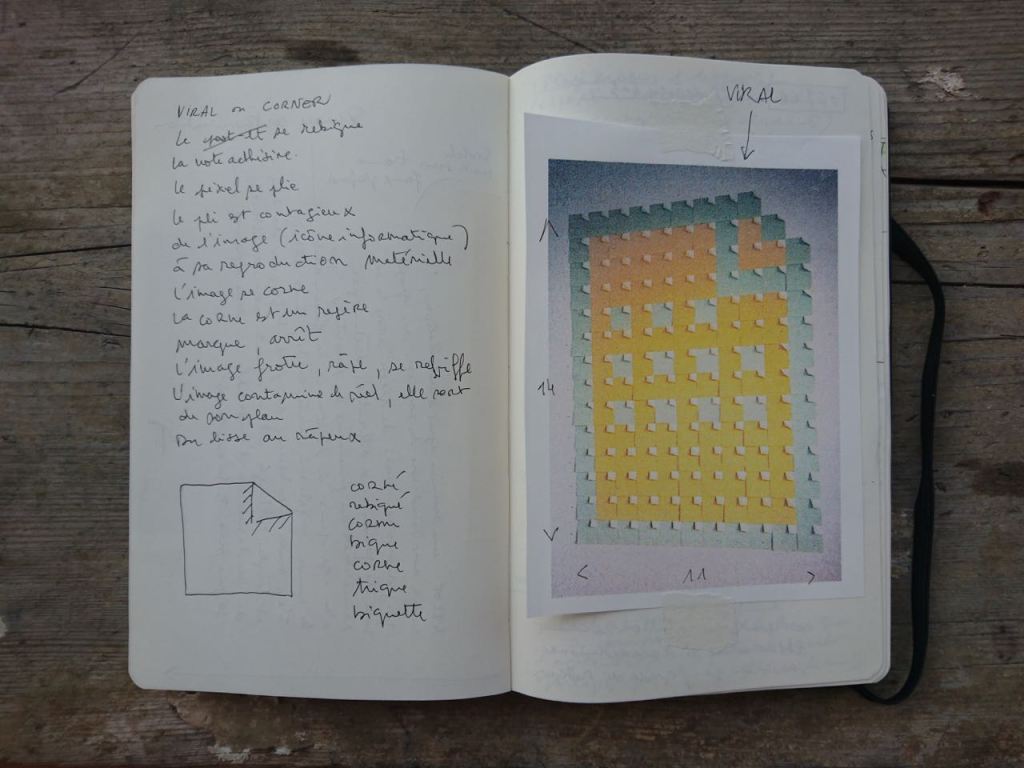 VIRAL ou CORNER
Le post-it se rebique
la note adhésive.
le pixel se plie
le pli est contagieux
de l'image (icône informatique)
à sa reproduction matérielle
l'image se corne
La corne est un repère
marque, arrêt
L'image frotte, râpe, se rebiffe
L'image contamine le réel, elle sort
de son plan
Du lisse au râpeux
corné
rebiqué
cornu
bique
corne
trique
biquette
VIRAL
14
< 11 >